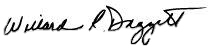 Willard R Daggett